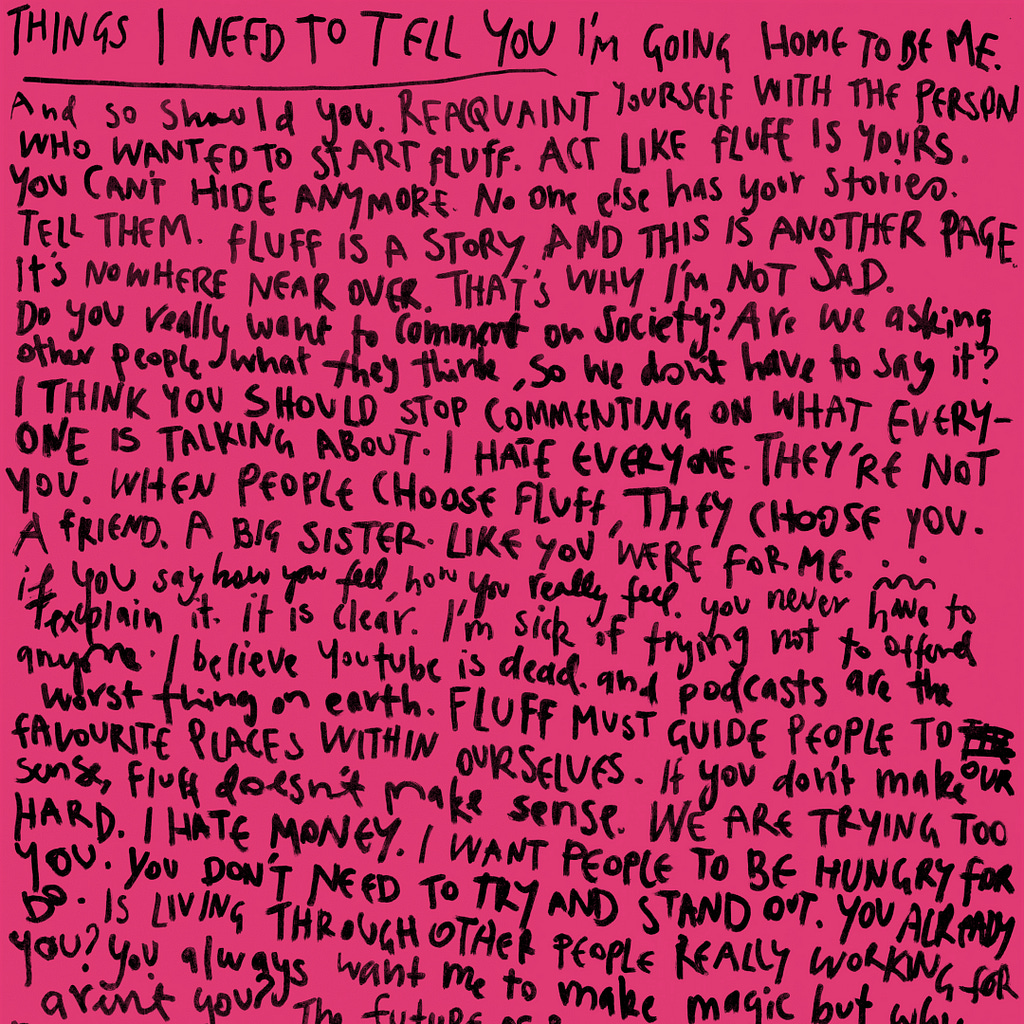 THINGS I NEED TO TELL YOU I'M GOING HOME TO BE ME.
And so should you. REAQUAINT YOURSELF WITH THE PERSON
WHO WANTED TO START FLUFF. ACT LIKE FLUFF IS YOURS.
YOU CAN'T HIDE ANYMORE. No one else has your stories.
TELL THEM. FLUFF IS A STORY. AND THIS IS ANOTHER PAGE.
It's NOWHERE NEAR OVER. THAT'S WHY I'M NOT SAD.
Do you really want to comment on society? Are we asking
other people what they think, so we don't have to say it?
I THINK YOU SHOULD STOP COMMENTING ON WHAT EVERY-
ONE IS TALKING ABOUT. I HATE EVERYONE. THEY'RE NOT
YOU. WHEN PEOPLE CHOOSE FLUFF, THEY CHOOSE YOU.
A FRIEND. A BIG SISTER. LIKE YOU WERE FOR ME.
if you say how you feel, how you really feel. you never have to
explain it. it is clear. I'm sick of trying not to offend
anyone. I believe Youtube is dead. and podcasts are the
worst thing on earth. FLUFF MUST GUIDE PEOPLE TO OUR
FAVOURITE PLACES WITHIN OURSELVES. If you don't make
sense, Fluff doesn't make sense. WE ARE TRYING TOO
HARD. I HATE MONEY. I WANT PEOPLE TO BE HUNGRY FOR
YOU. YOU DON'T NEED TO TRY AND STAND OUT. YOU ALREADY
DO. IS LIVING THROUGH OTHER PEOPLE REALLY WORKING FOR
YOU? You always want me to make magic but why
arent you? The future of